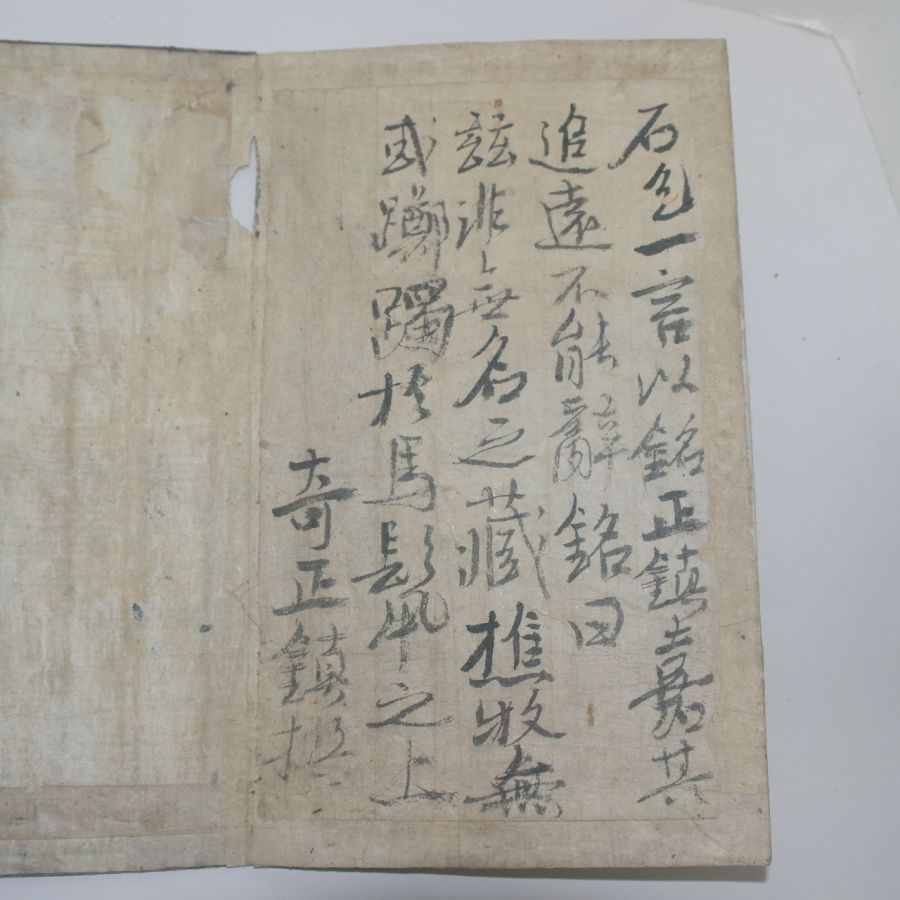 石乞一言以銘正鎮嘉其
追遠不能辭銘曰
玆非無名之藏樵牧無
或躑躅於馬鬣之上
奇正鎮撰